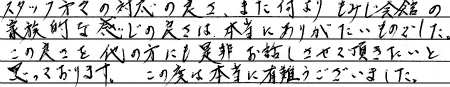 スタッフ方々の対応の良さ、また何よりもみじ会館の
家族的な感じの良さは、本当にありがたいものでした。
この良さを他の方にも是非お話しさせて頂きたいと
思っております。 この度は本当に有難うございました。